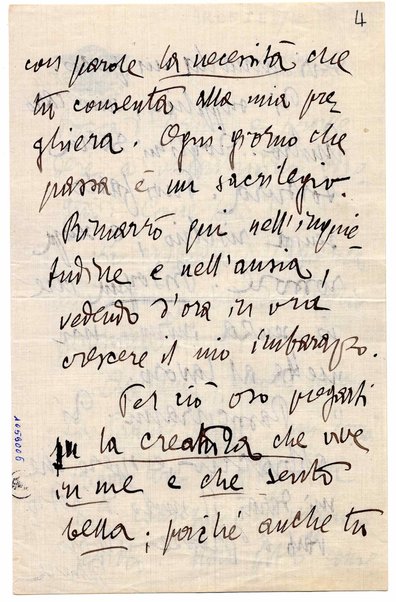 4
con parole la necessità che
tu consenta alla mia pre-
ghiera. Ogni giorno che
passa è un sacrilegio.
Rimarrò qui nell'inquie-
tudine e nell'ansia,
vedendo d'ora in ora
crescere il mio imbarazzo.
Per ciò oso pregarti
per la creatura che vive
in me e che sento
bella; poiché anche tu
1056006